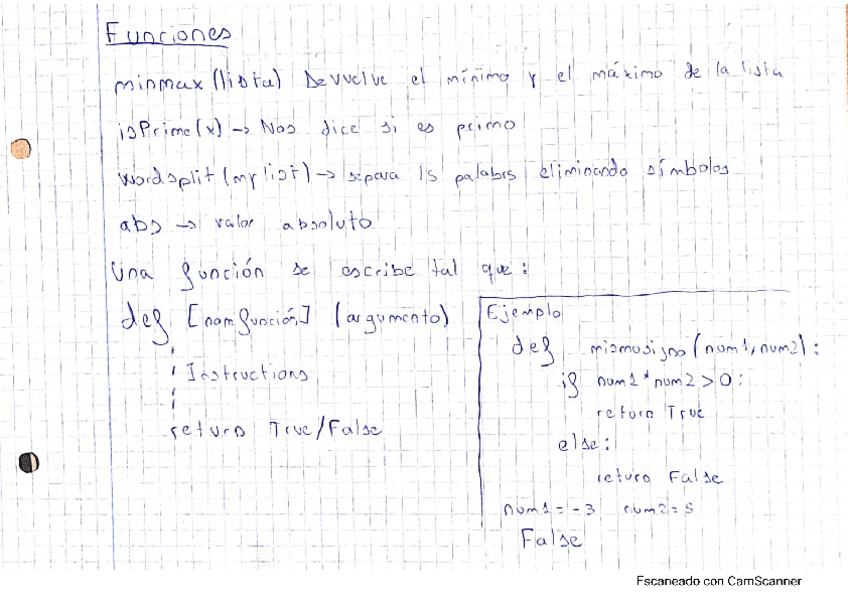 Funciones
minmax (lista) Devuelve el mínimo y el máximo de la lista
isPrime(x) -> Nos dice si es primo
wordsplit (mylist) -> separa ls palabrs eliminando símbolos
abs -> valor absoluto
Una función se escribe tal que :
def [nomfunción] (argumento)
Instructions
return True/False
Ejemplo
def mismosigno (num1, num2) :
if num1 * num2 > 0 :
return True
else :
return False
num1 = -3 num2 = 5
False
Escaneado con CamScanner